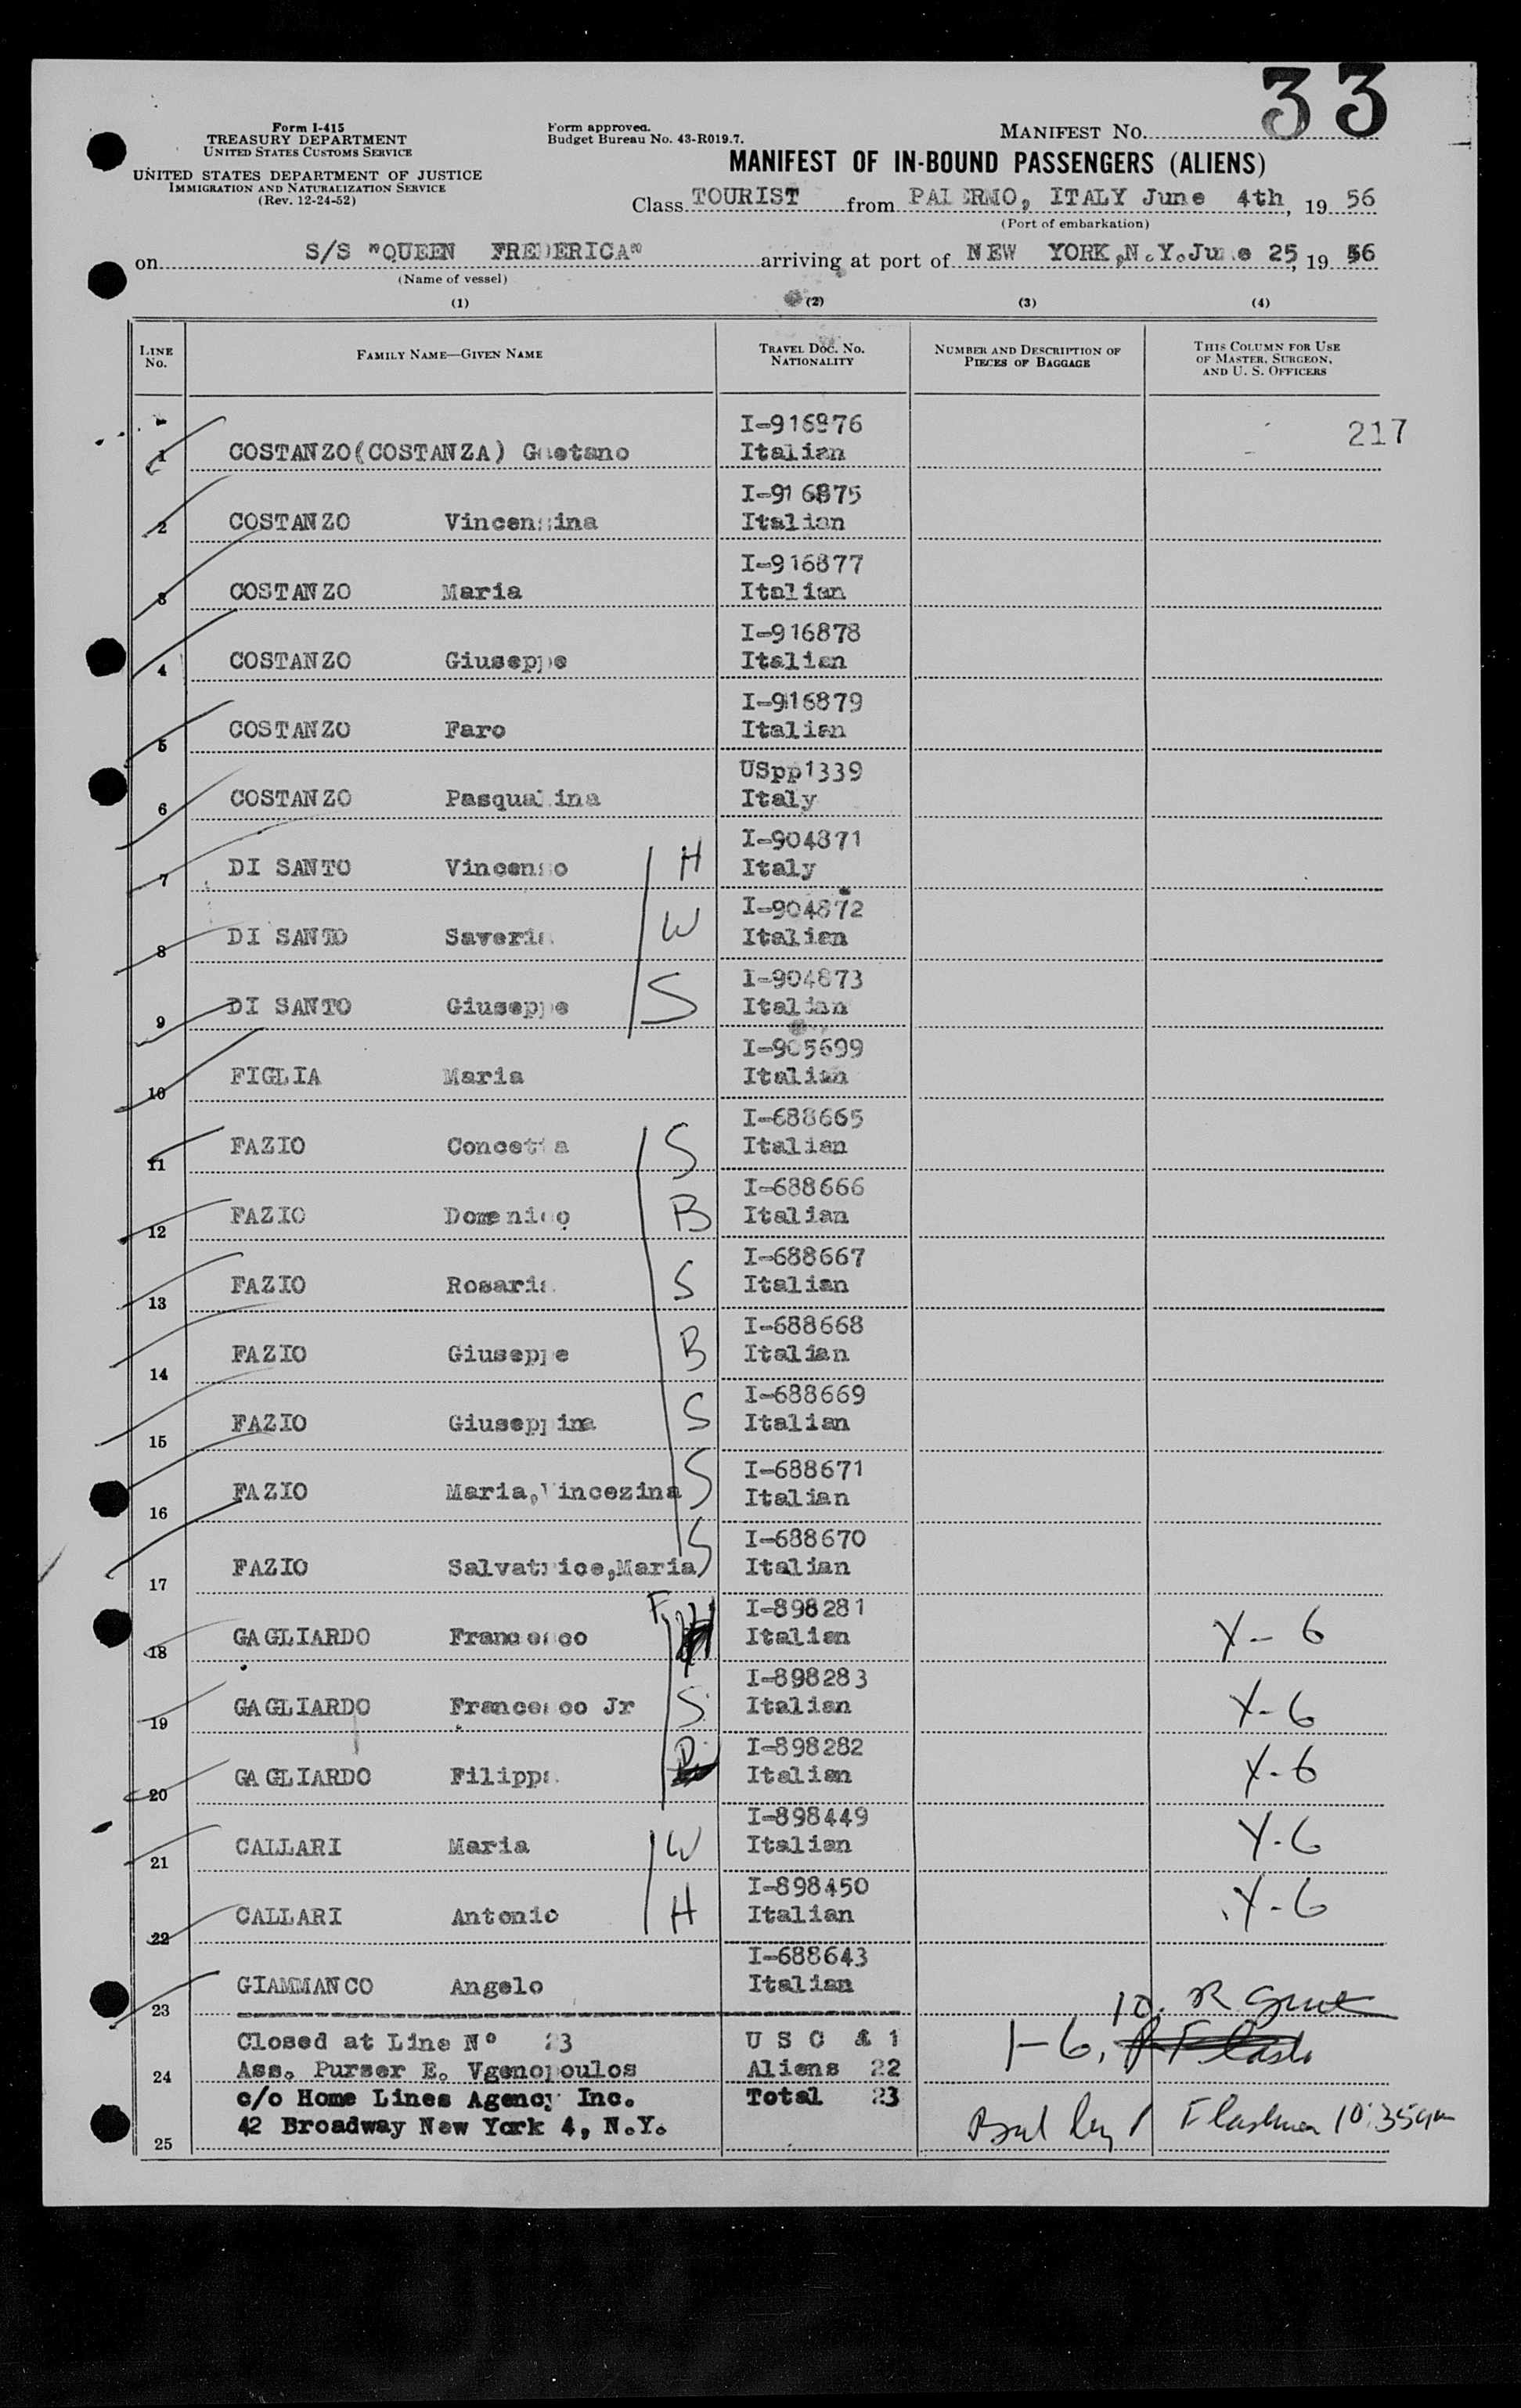 33
Form I-415
TREASURY DEPARTMENT
UNITED STATES CUSTOMS SERVICE
UNITED STATES DEPARTMENT OF JUSTICE
IMMIGRATION AND NATURALIZATION SERVICE
(Rev. 12-24-52)
Form approved.
Budget Bureau No. 43-R019.7.
MANIFEST NO.
MANIFEST OF IN-BOUND PASSENGERS (ALIENS)
Class TOURIST from PALERMO, ITALY June 4th, 19 56
(Port of embarkation)
on S/S "QUEEN FREDERICA" arriving at port of NEW YORK,N.Y.June 25, 19 56
(Name of vessel)
(1) (2) (3) (4)
LINE NO. FAMILY NAME—GIVEN NAME TRAVEL DOC. NO. NATIONALITY NUMBER AND DESCRIPTION OF PIECES OF BAGGAGE THIS COLUMN FOR USE OF MASTER, SURGEON, AND U. S. OFFICERS
I-916876 217
1 COSTANZO(COSTANZA) Gaetano Italian
I-916875
2 COSTANZO Vincenzina Italian
I-916877
3 COSTANZO Maria Italian
I-916878
4 COSTANZO Giuseppe Italian
I-916879
5 COSTANZO Faro Italian
USpp1339
6 COSTANZO Pasqualina Italy
I-904871
7 DI SANTO Vincenzo H Italy
I-904872
8 DI SANTO Saveria W Italian
I-904873
9 DI SANTO Giuseppe S Italian
I-905699
10 FIGLIA Maria Italian
I-688665
11 FAZIO Concetta S Italian
I-688666
12 FAZIO Domenico B Italian
I-688667
13 FAZIO Rosaria S Italian
I-688668
14 FAZIO Giuseppe B Italian
I-688669
15 FAZIO Giuseppina S Italian
I-688671
16 FAZIO Maria,Vincezina S Italian
I-688670
17 FAZIO Salvatrice,Maria S Italian
I-898281
18 GAGLIARDO Francesco F Italian Y-6
I-898283
19 GAGLIARDO Francesco Jr S Italian Y-6
I-898282
20 GAGLIARDO Filippa Italian Y-6
I-898449
21 CALLARI Maria W Italian Y-6
I-898450
22 CALLARI Antonio H Italian Y-6
I-688643
23 GIAMMANCO Angelo Italian
10. R
Closed at Line Nº 23 U S C & 1 1-6,
24 Ass. Purser E. Vgenopoulos Aliens 22
c/o Home Lines Agency Inc. Total 23
42 Broadway New York 4, N.Y. 10:35am
25